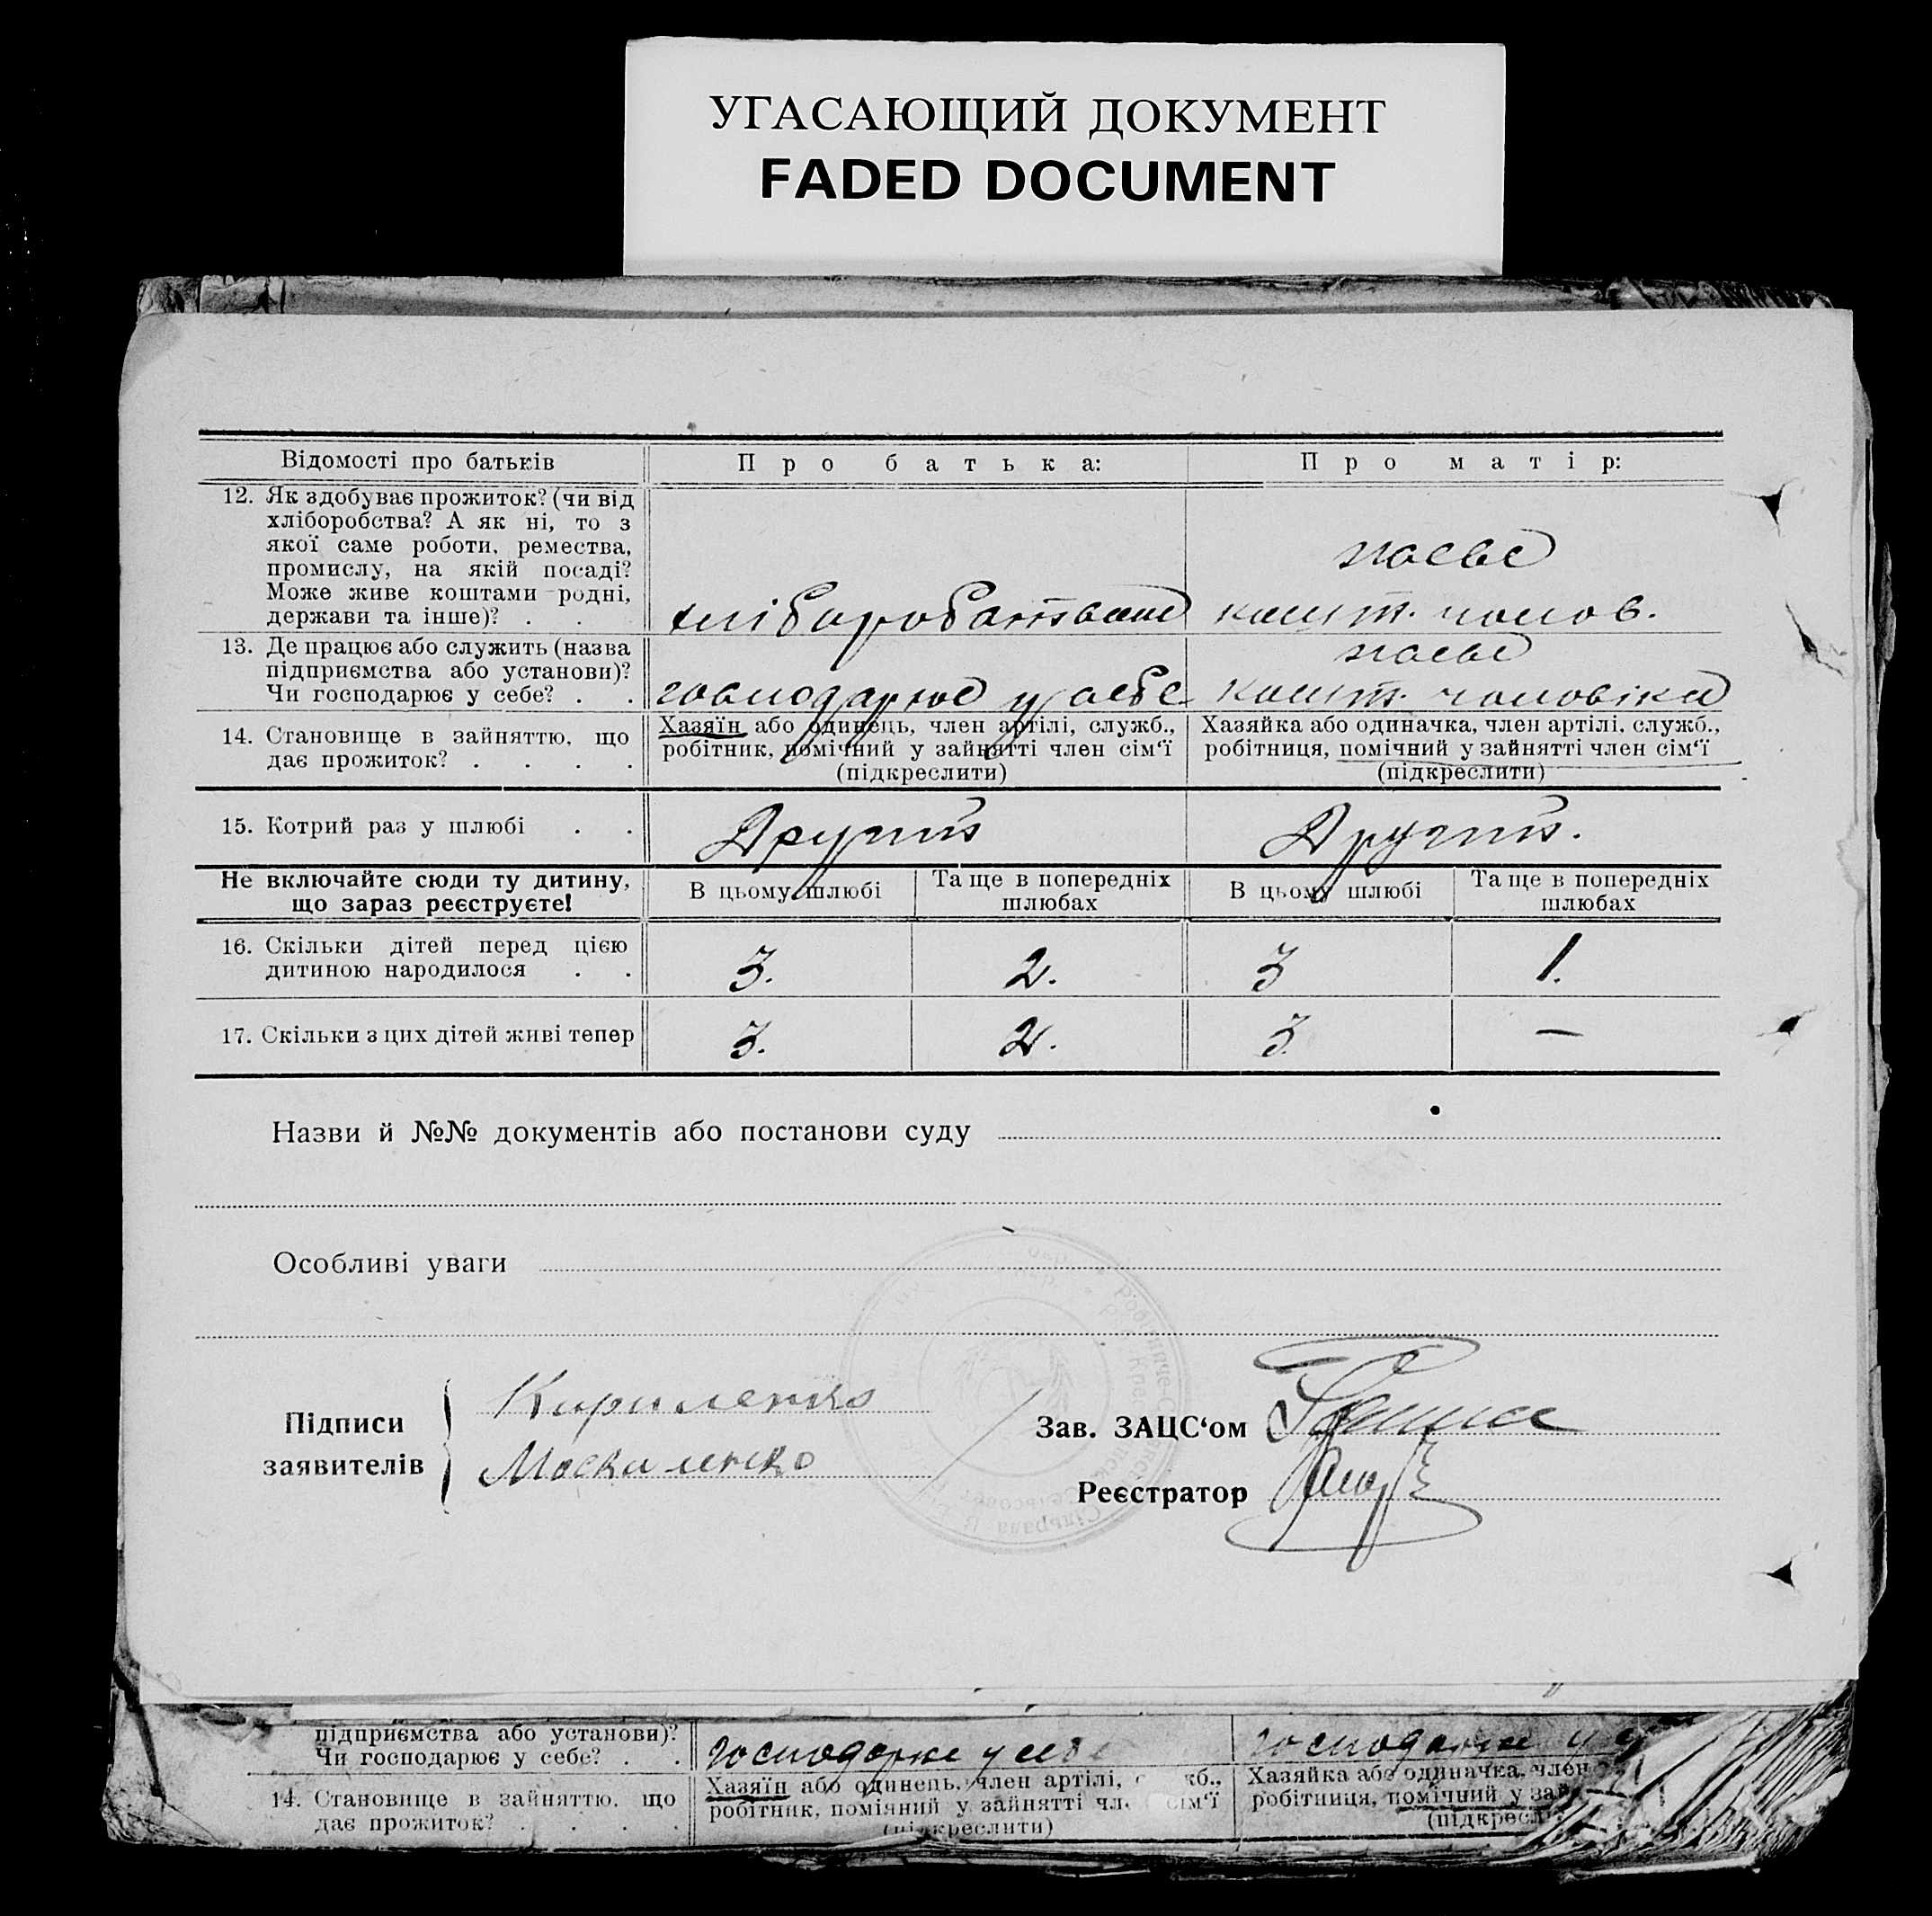 УГАСАЮЩИЙ ДОКУМЕНТ
FADED DOCUMENT
Відомості про батьків
Про батька:
Про матір:
12. Як здобуває прожиток? (чи від
хліборобства? А як ні, то з
якої саме роботи, ремества,
промислу, на якій посаді?
Може живе коштами родні,
держави та інше)? . .
хліборобством
живе
кошт. чолов.
13. Де працює або служить (назва
підприємства або установи)?
Чи господарює у себе? . .
господарює у себе
живе
кошт. чоловіка
14. Становище в зайняттю, що
дає прожиток? . . . .
Хазяїн або одинець, член артілі, служб.,
робітник, помічний у зайнятті член сім'ї
(підкреслити)
Хазяйка або одиначка, член артілі, служб.,
робітниця, помічний у зайнятті член сім'ї
(підкреслити)
15. Котрий раз у шлюбі . .
Другий
Другий.
Не включайте сюди ту дитину,
що зараз реєструєте!
В цьому шлюбі
Та ще в попередніх
шлюбах
В цьому шлюбі
Та ще в попередніх
шлюбах
16. Скільки дітей перед цією
дитиною народилося . .
3.
2.
3
1.
17. Скільки з цих дітей живі тепер
3.
2.
3
—
Назви й №№ документів або постанови суду
Особливі уваги
Підписи
заявителів
Кириленко
Москаленко
Зав. ЗАЦС'ом
Реєстратор
підприємства або установи)?
Чи господарює у себе? . .
господарює у себе
господарює у
14. Становище в зайняттю, що
дає прожиток? . . . .
Хазяїн або одинець, член артілі,
робітник, помічний у зайнятті
сім'ї
(підкреслити)
Хазяйка або одиначка, член
робітниця, помічний у